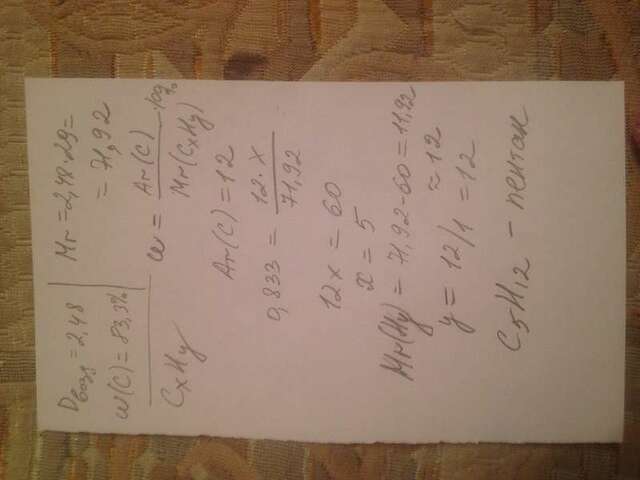 Dвозд = 2,48
w(C) = 83,3%
CxHy
Mr = 2,48·29=
= 71,92
w = Ar(C) / Mr(CxHy) · 100%
Ar(C) = 12
0,833 = 12·x / 71,92
12x = 60
x = 5
Mr(Hy) = 71,92-60 = 11,92
≈ 12
y = 12/1 = 12
C5H12 – пентан